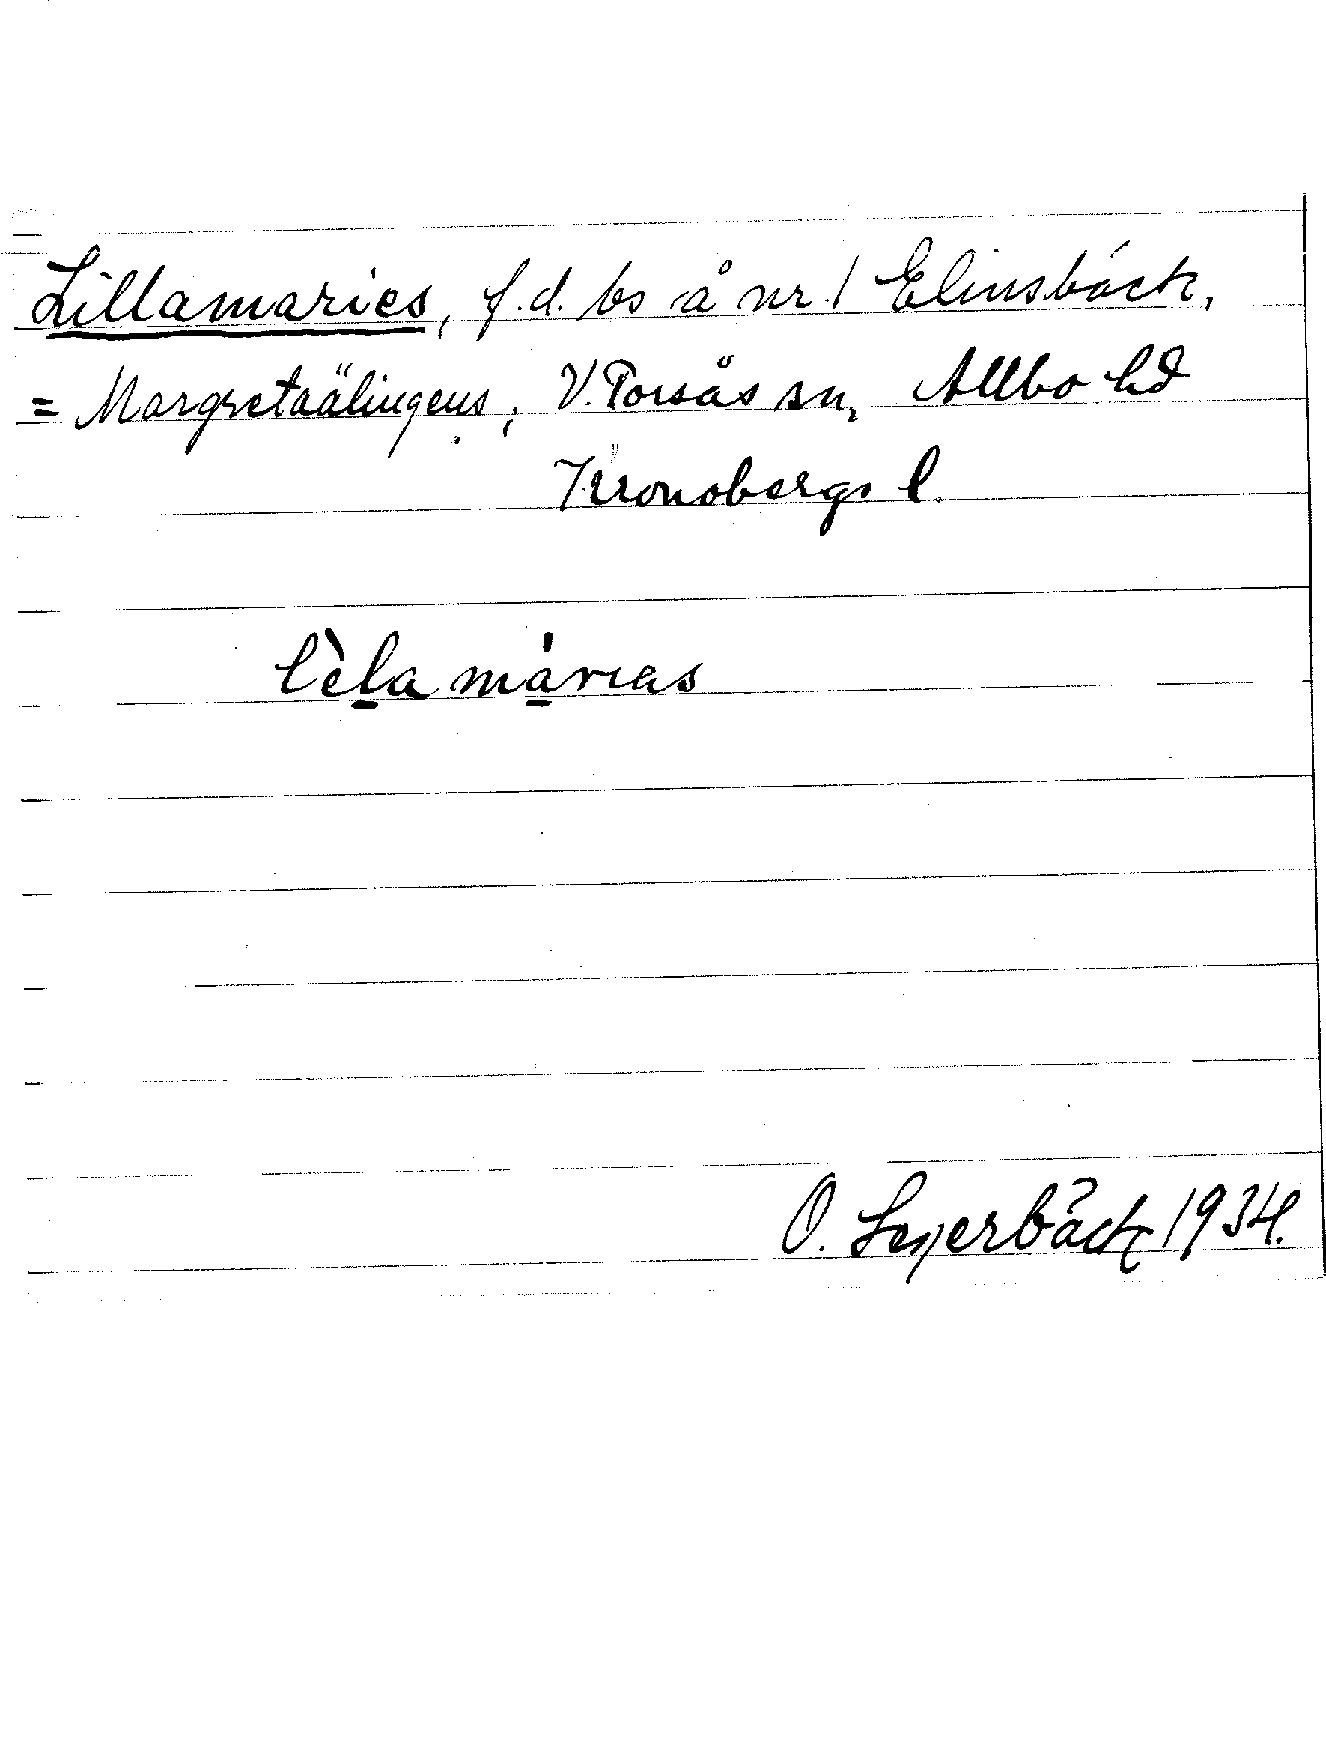 Lillamaries, f.d. bs å nr 1 Elinsbäck,
= Margretaälingens, V. Torsås sn, Allbo hd
Kronobergs l.
lèla márias
O. Lagerbäck 1934.